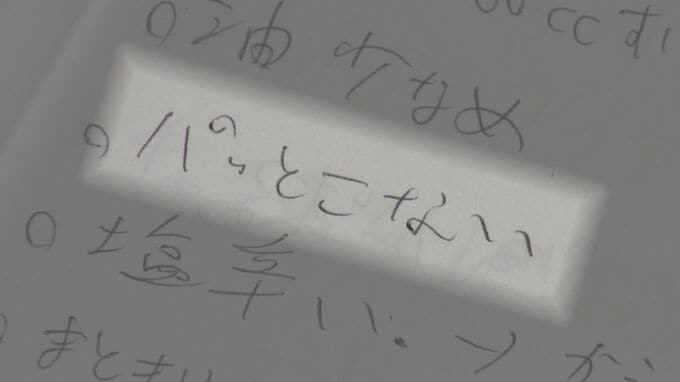 cc すい
○油少なめ
○パッとこない
○塩辛い。
まとまり